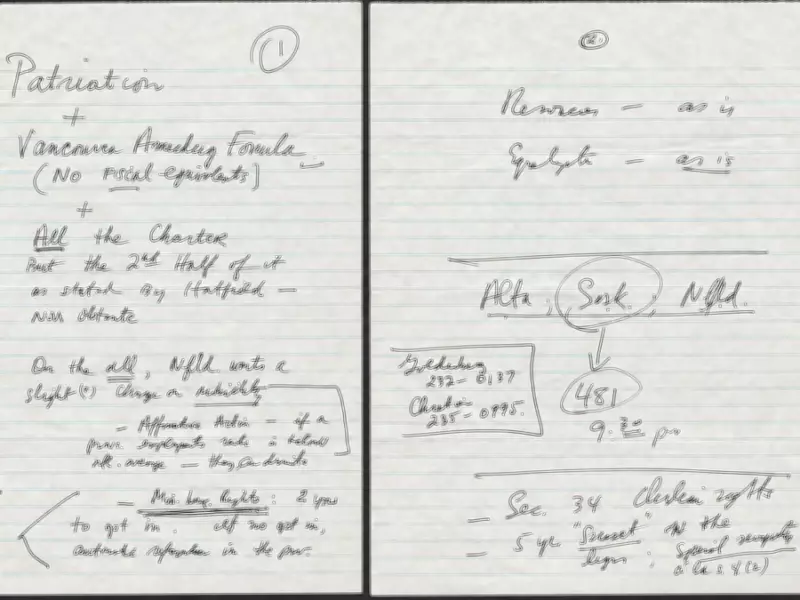 1
Patriation
+
Vancouver Amending Formula
(No Fiscal equivalents)
+
All the Charter
But the 2nd Half of it
as stated by Hatfield —
Non obstante
On the all, Nfld wants a
slight (?) change on mobility
— Affirmative Action — if a
prov. employment rate is below
nat. average — they can
— Min. Lang. Rights: 2 years
to opt in. If no opt in,
automatic referendum in the prov.
2.
Resources — as is
Equalization — as is
Alta, Sask, Nfld.
Goldenberg
232-0137
Chretien
235-0995.
481
9.30 pm
— Sec. 34
— 5 yr "Sunset" on the
: Special
s. 4 (2)